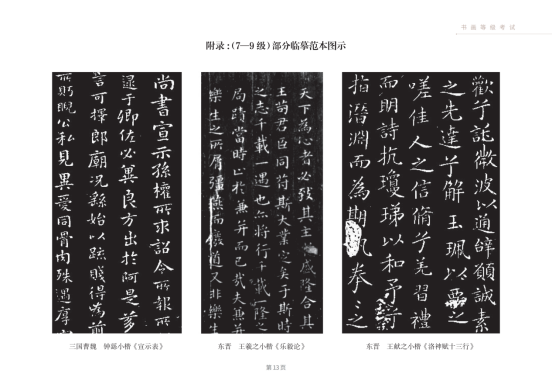 书画等级考试
附录:(7—9 级)部分临摹范本图示
尚書宣示孫權所求詔令所報所
逮于卿佐必冀良方出於阿是芻
言可擇郎廟況繇始以疏賤得為前
所盱睨公私見異愛同骨肉殊遇厚
三国曹魏 钟繇小楷《宣示表》
天下為心者必致其主於盛隆合其
王苟君臣同符斯大業定矣于斯時
之志千載一遇也亦將行千載一隆之
局蹟當時止於兼并而已哉夫兼并
樂生之所屑彊燕而廢道又非樂生
东晋 王羲之小楷《乐毅论》
歡兮託微波以通辭願誠素
之先達兮解玉珮以要之
嗟佳人之信脩兮羌習禮
而明詩抗瓊珶以和予兮
指潛淵而為期執拳拳之
东晋 王献之小楷《洛神赋十三行》
第 13 页